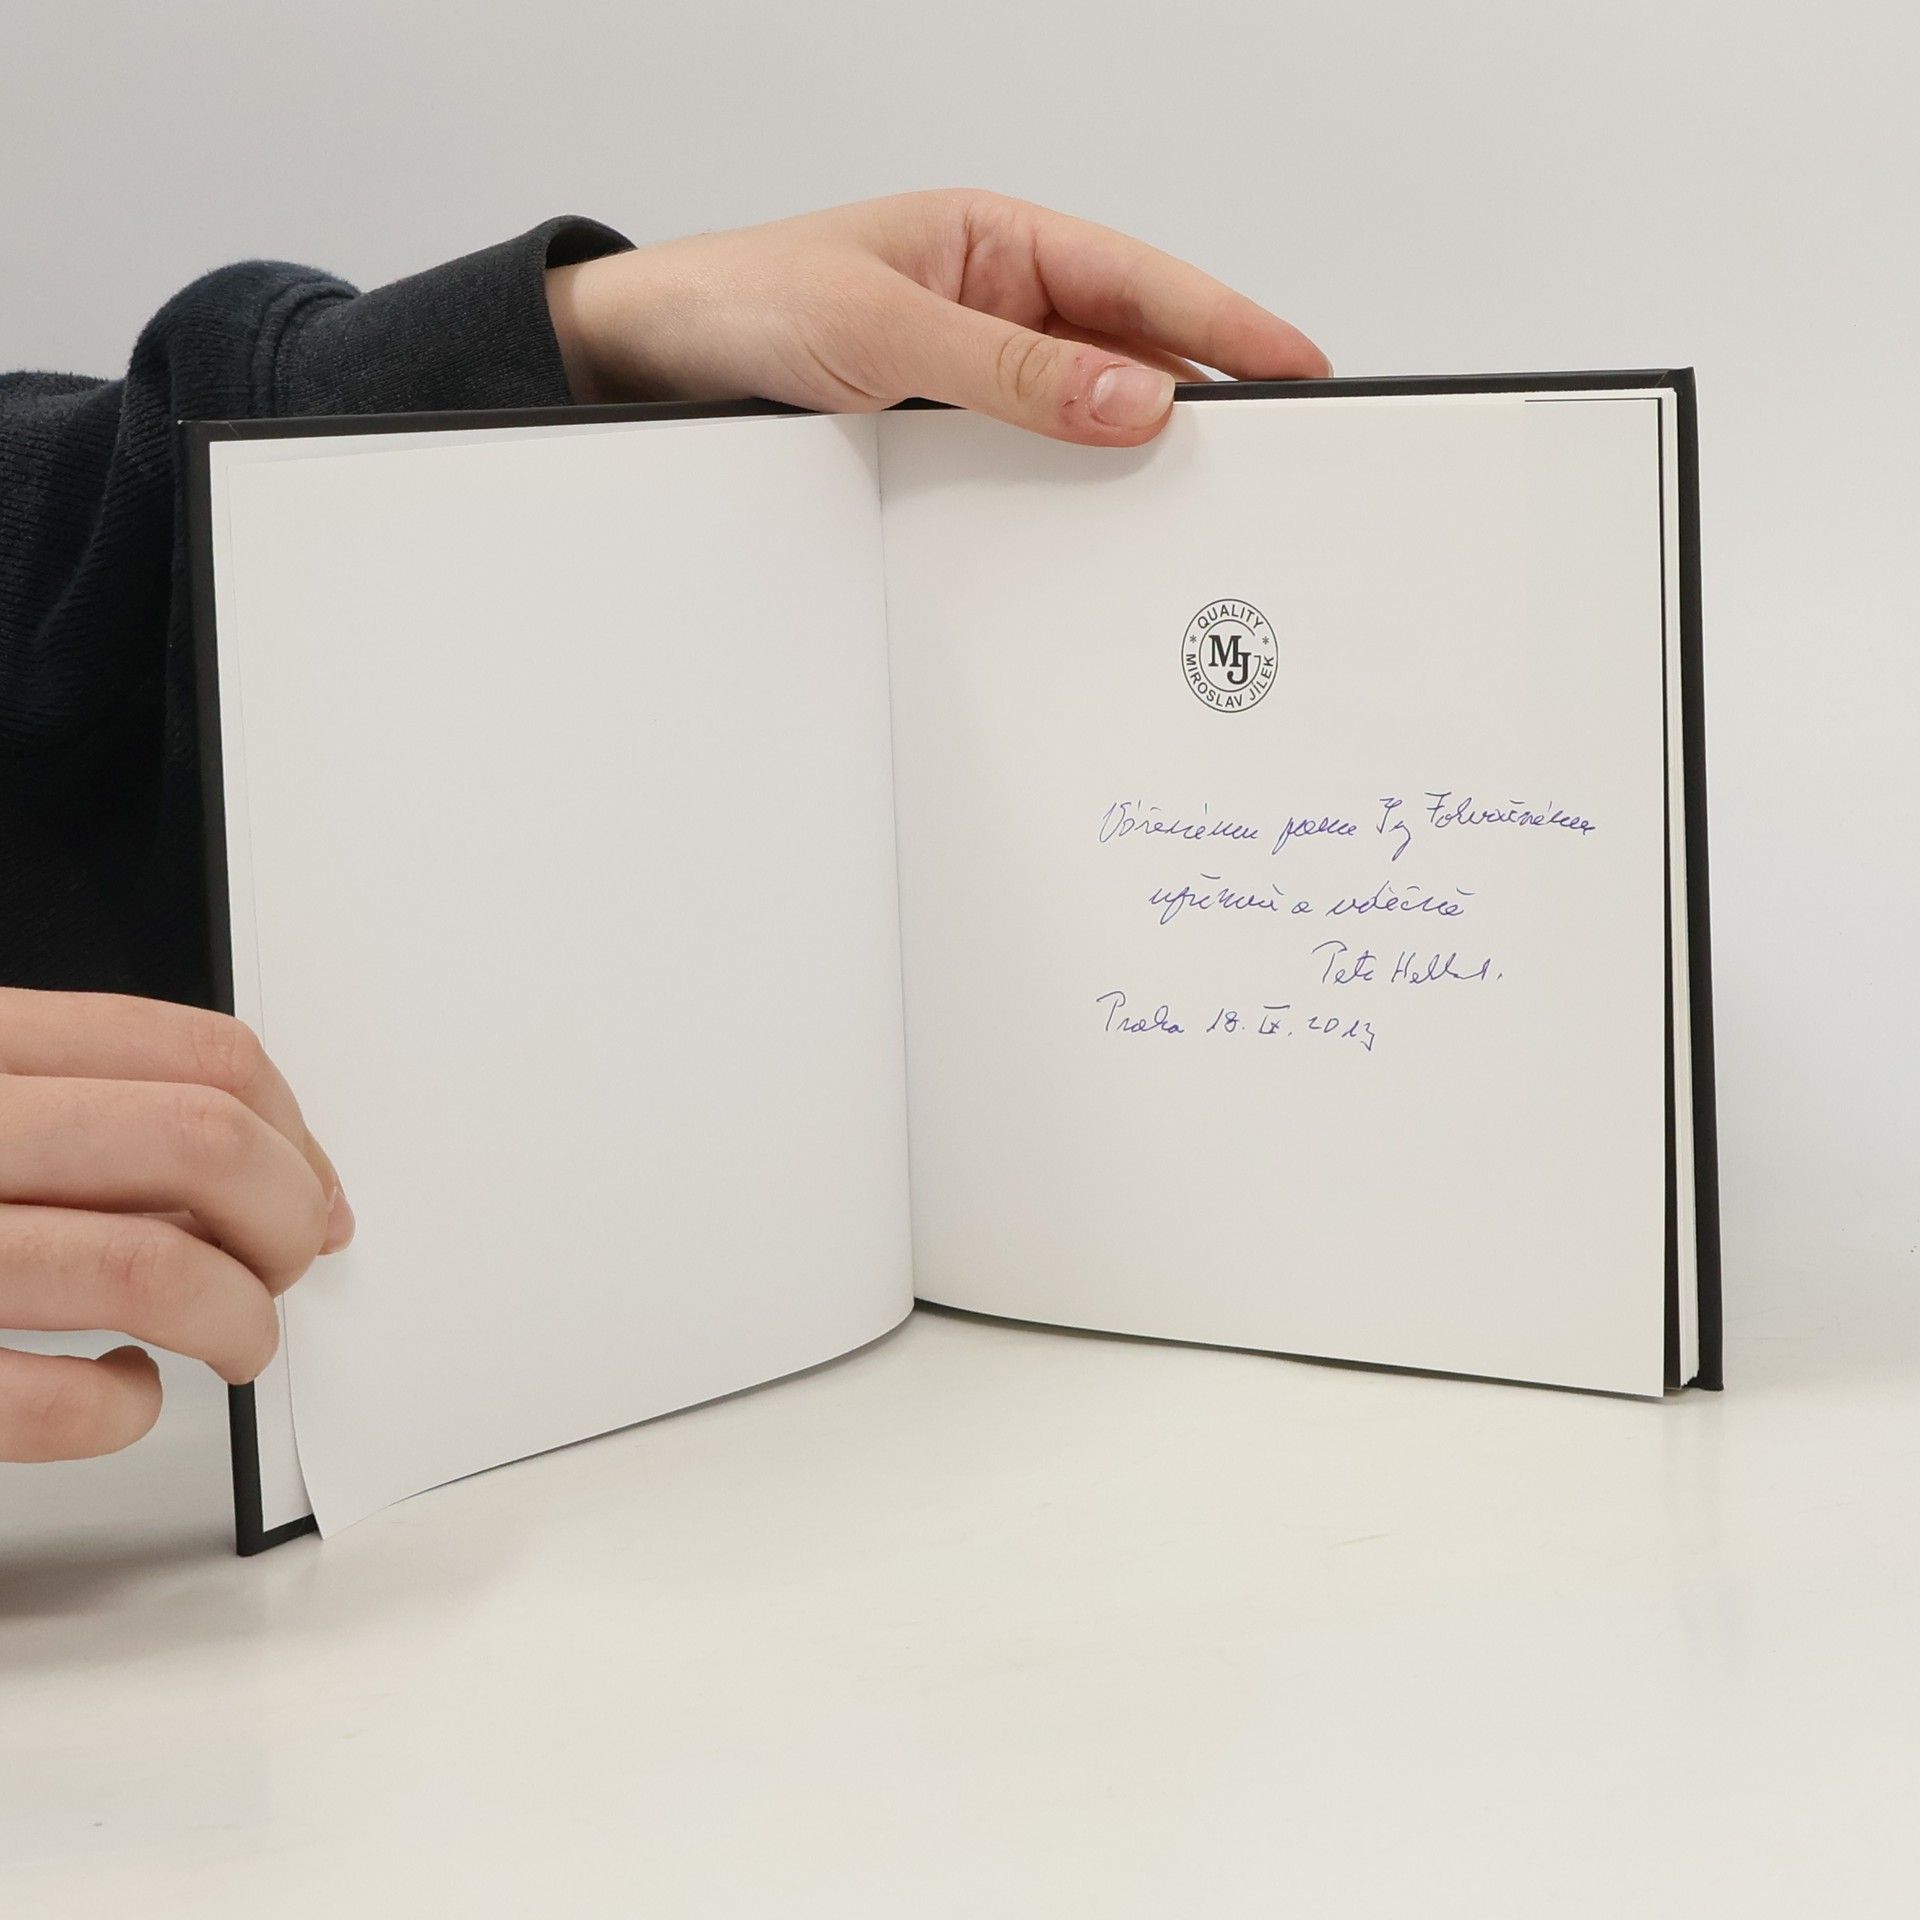 QUALITY
MJ
MIROSLAV JÍLEK
Váženému panu Ing Folvarčnému
upřímně a vděčně
Petr
Praha 18. IX. 2013